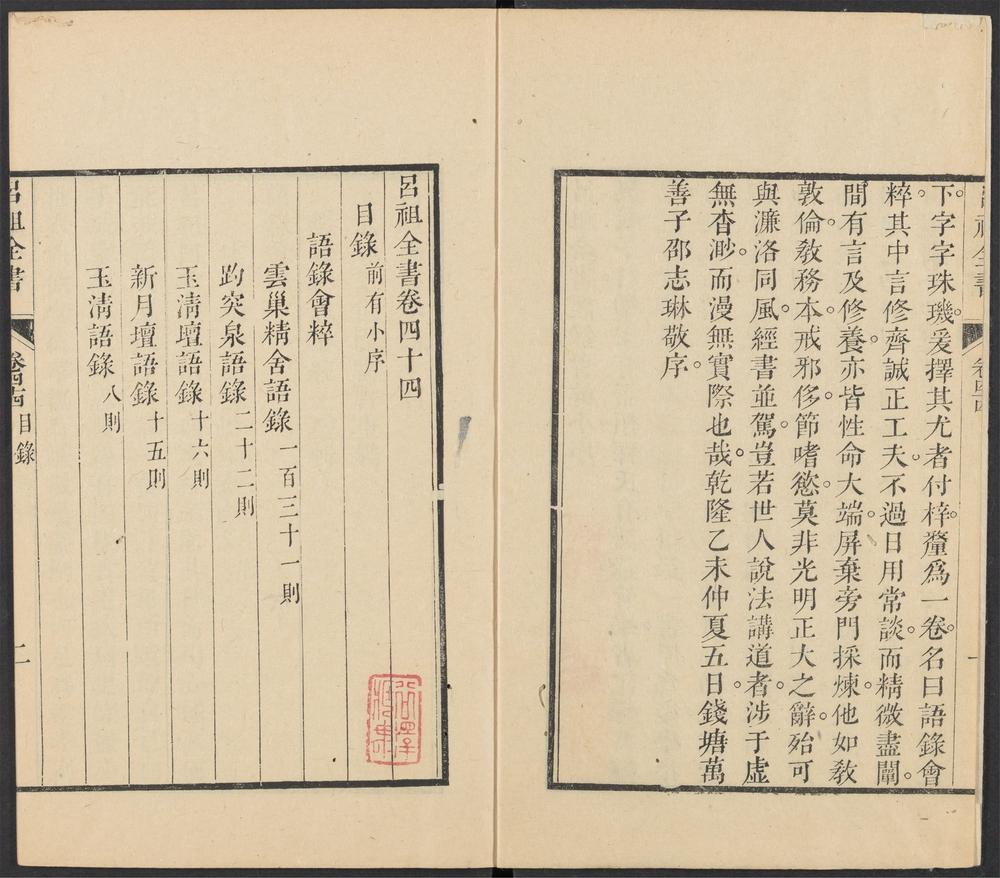 下字字珠璣爰擇其尤者付梓釐爲一卷名曰語錄會
粹其中言修齊誠正工夫不過日用常談而精微盡闡
間有言及修養亦皆性命大端屏棄旁門採煉他如敎
敦倫敎務本戒邪侈節嗜慾莫非光明正大之辭殆可
與濂洛同風經書並駕豈若世人說法講道者涉于虛
無杳渺而漫無實際也哉乾隆乙未仲夏五日錢塘萬
善子邵志琳敬序
呂祖全書卷四十四
目錄 前有小序
語錄會粹
雲巢精舍語錄 一百三十一則
趵突泉語錄 二十二則
玉淸壇語錄 十六則
新月壇語錄 十五則
玉淸語錄 八則
呂祖全書 卷四十四 目錄 二